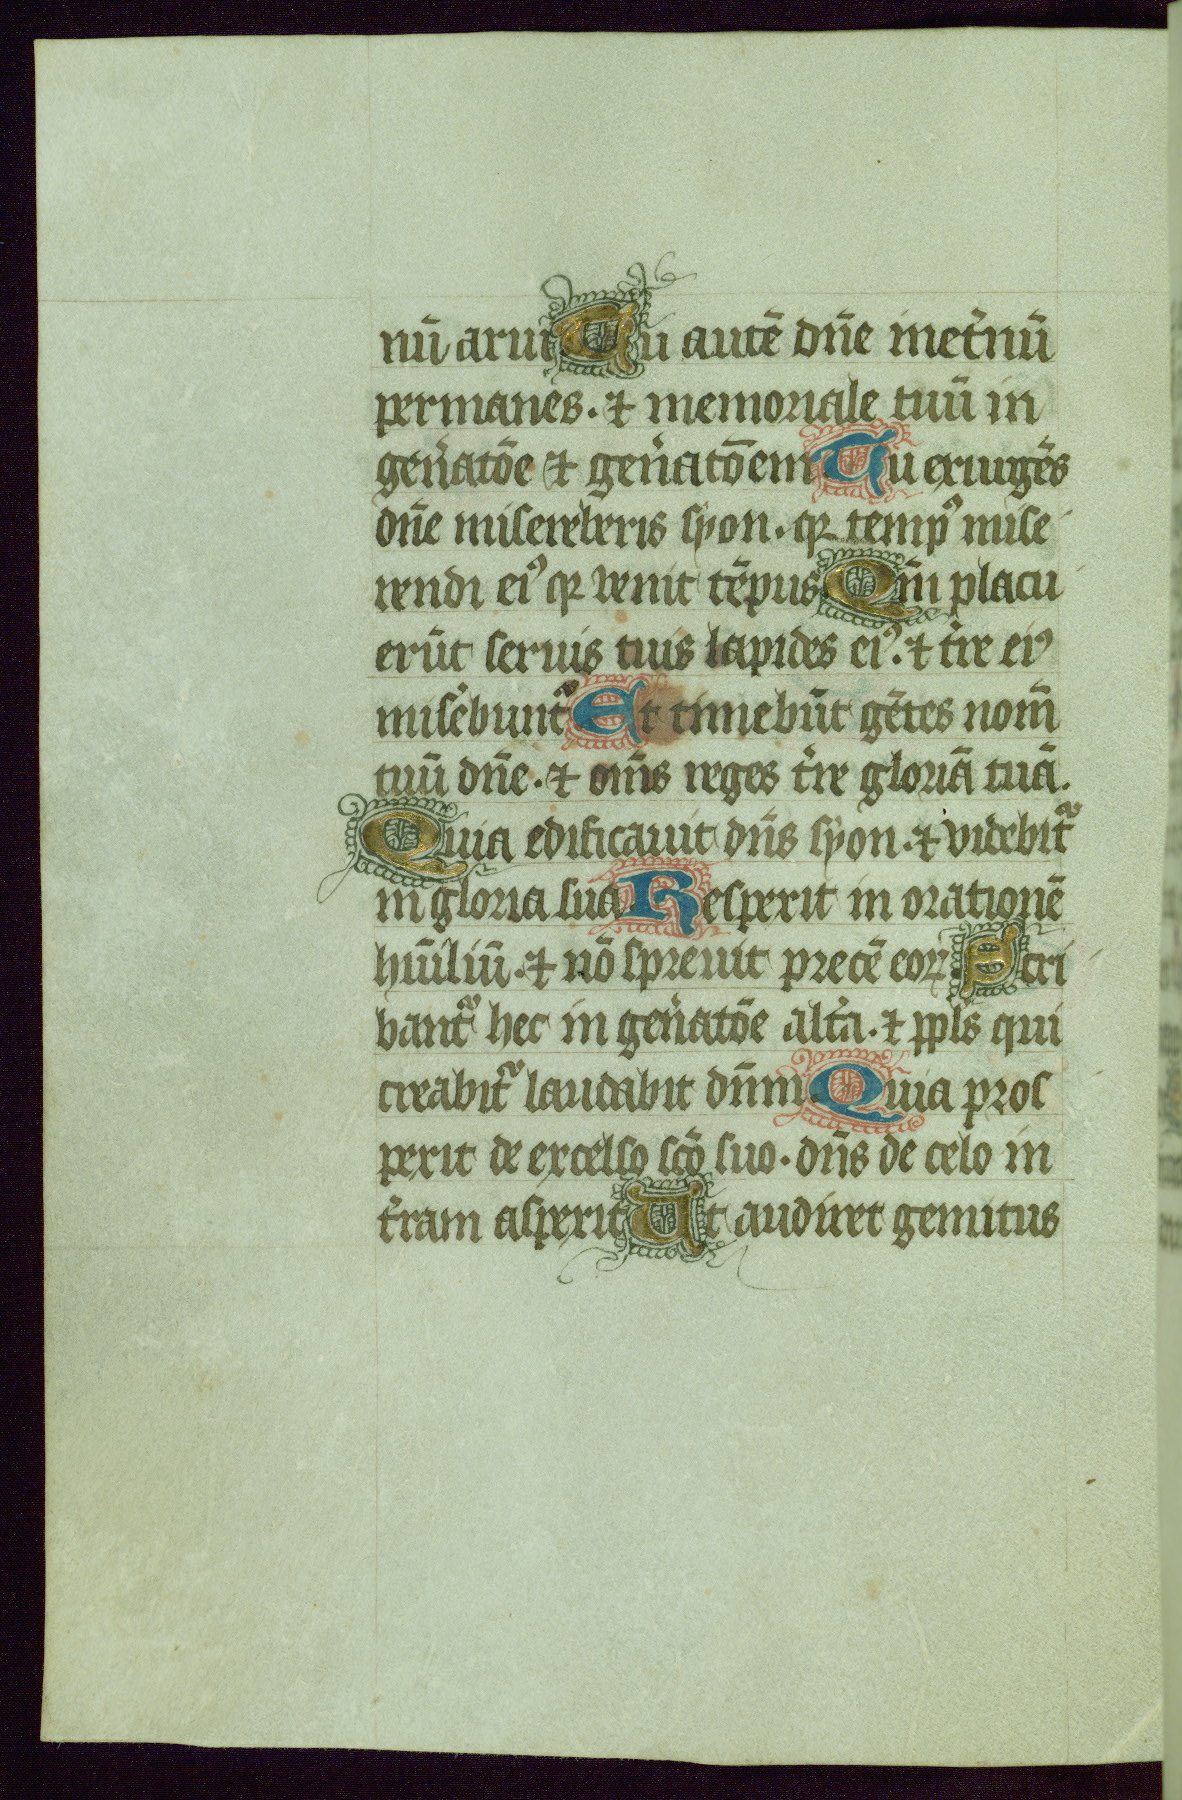 nū arui Tu autē dn̄e inet̄nū
permanes. ⁊ memoriale tuū in
gen̄atōe ⁊ gen̄atōem Tu exurgēs
dn̄e misereberis syon. qꝛ tempꝰ mise
rendi eiꝰ qꝛ venit tēpus Qm̄ placu
erūt seruis tuis lapides eiꝰ. ⁊ t̄re eiꝰ
mis̄ebuntᷣ Et timebūt gētes nom̄
tuū dn̄e. ⁊ om̄s reges t̄re gloriā tuā.
Quia edificauit dn̄s syon. ⁊ videbitᷣ
in gloria sua Respexit in orationē
hūiliū. ⁊ nō spreuit precē eoꝝ Scri
bantᷣ hec in gen̄atōe alt̄a. ⁊ ppl̄s qui
creabitᷣ laudabit dn̄m. Quia pros
pexit de excelso scō suo. dn̄s de celo in
t̄ram aspexit Ut audiret gemitus